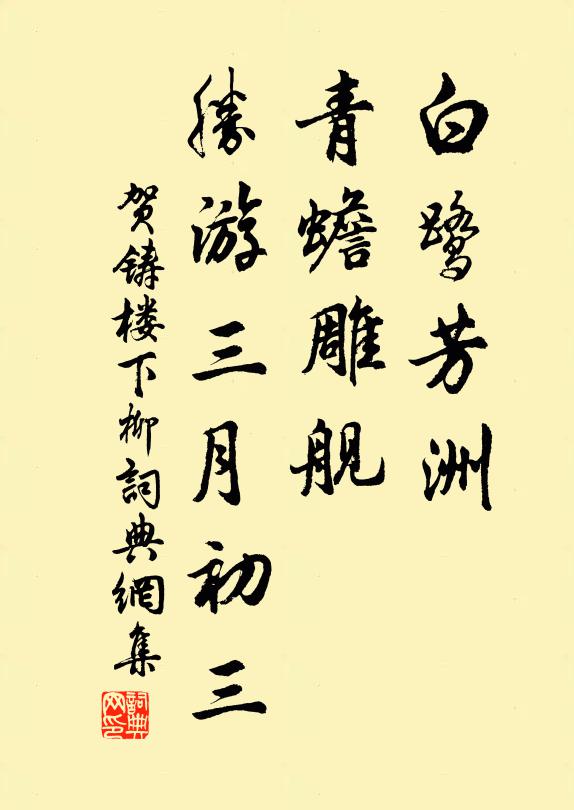 白鹭芳洲
青蟾雕舰
胜游三月初三
贺铸楼下柳詞典網集
詞典网印